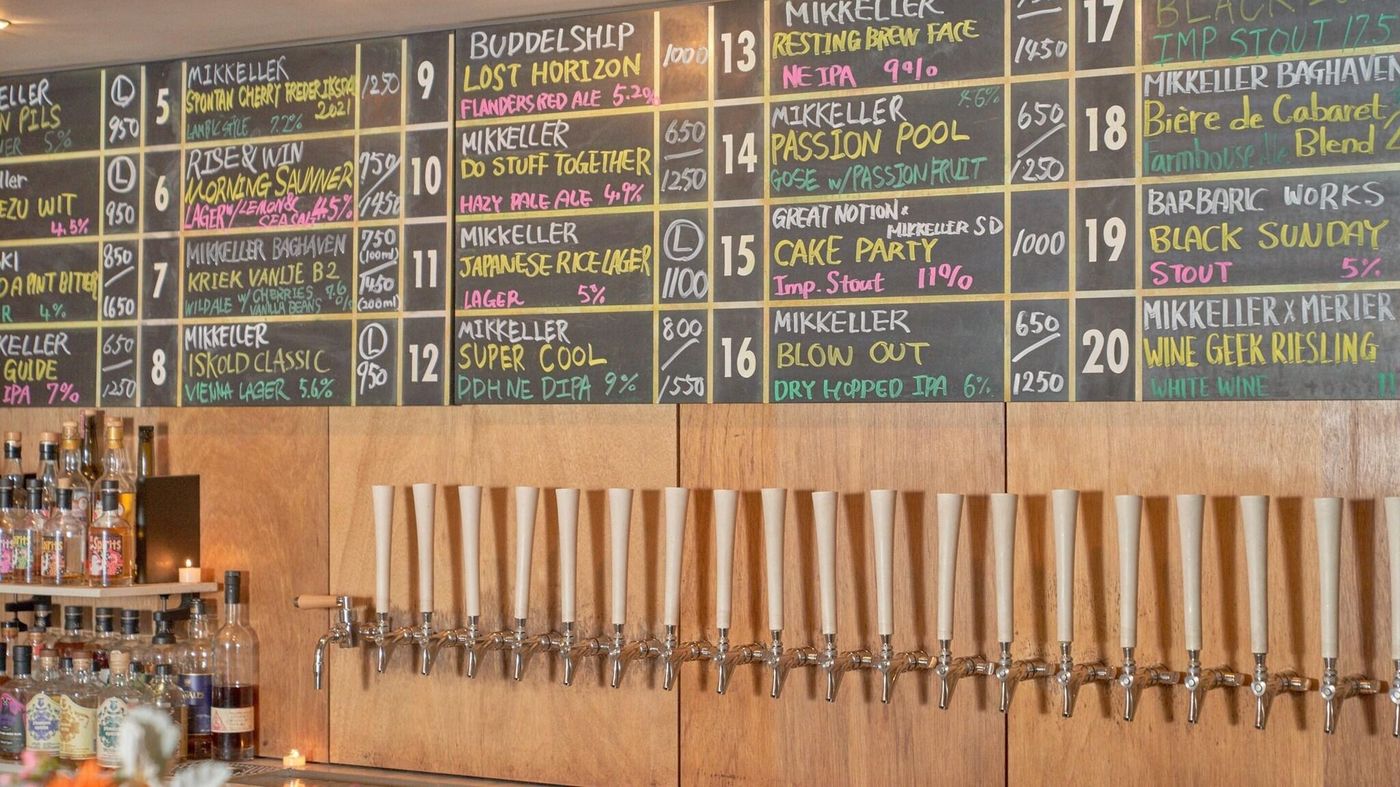 PILS
5%
L
950
WIT
4.5%
L
950
4%
850
1650
GUIDE
IPA 7%
650
1250
5
MIKKELLER
SPONTAN CHERRY FREDERIKSDAL
2021
LAMBIC STYLE 7.2%
1250
6
RISE & WIN
MORNING SAUNNER
LAGER W/ LEMON &
4.5%
750
1450
7
MIKKELLER BAGHAVEN
KRIEK VANLJE B2
WILD ALE W/ CHERRIES
VANILLA BEANS
750
(100ml)
1450
(200ml)
8
MIKKELLER
ISKOLD CLASSIC
VIENNA LAGER 5.6%
L
950
9
BUDDELSHIP
LOST HORIZON
FLANDERS RED ALE 5.2%
1000
10
MIKKELLER
DO STUFF TOGETHER
HAZY PALE ALE 4.9%
650
1250
11
MIKKELLER
JAPANESE RICE LAGER
LAGER 5%
L
1100
12
MIKKELLER
SUPER COOL
DDH NE DIPA 9%
800
1550
13
MIKKELLER
RESTING BREW FACE
NE IPA 9%
1450
14
MIKKELLER
PASSION POOL
GOSE W/ PASSIONFRUIT
650
1250
15
GREAT NOTION &
MIKKELLER SD
CAKE PARTY
Imp. Stout 11%
1000
16
MIKKELLER
BLOW OUT
DRY HOPPED IPA 6%
650
1250
17
IMP STOUT 17.5
18
MIKKELLER BAGHAVEN
Bière de Cabaret
Farmhouse Ale Blend 2
19
BARBARIC WORKS
BLACK SUNDAY
STOUT 5%
20
MIKKELLER X
WINE GEEK RIESLING
WHITE WINE